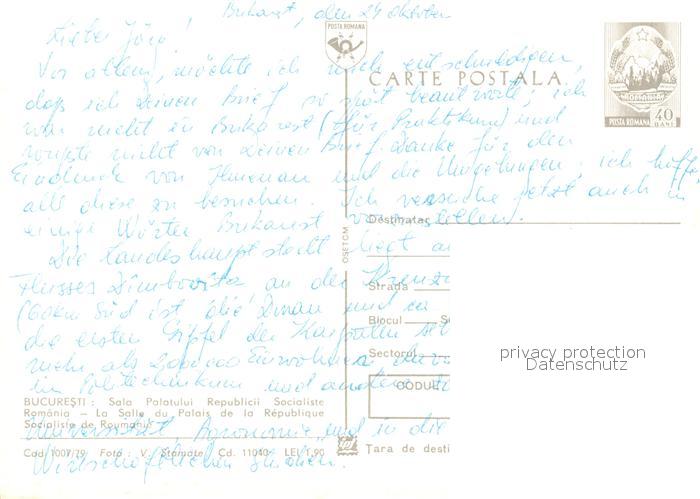 Bukarest, den 24 Oktober
Lieber Jörg!
Vor allem, möchte ich mich entschuldigen,
daß ich Deinen Brief so spät beantworte, ich
war nicht in Bukarest (für Praktikum) und
wußte nicht von Deinen Brief. Danke für den
Eindruck von Ilmenau und die Umgebungen; ich hoffe
all diese zu besuchen. Ich versuche jetzt auch in
einige Wörter Bukarest vorstellen.
Die Landeshauptstadt liegt an
Flusses Dîmbovița, an der
(60km Süd ist die Donau und ca
die ersten Gipfel der Karpaten
mehr als 2.000.000 Einwohner
im Politechnikum und andere
Universität, Agronomie, und in die
Wirtschaftlichen Studien.
POSTA ROMANA
CARTE POSTALA
POSTA ROMANA 40 BANI
Destinatar
OSETCM
Strada
Blocul
Sectorul
CODUL
Tara de desti
privacy protection
Datenschutz
BUCUREȘTI : Sala Palatului Republicii Socialiste
România — La Salle du Palais de la République
Socialiste de Roumanie
Cod 1007/79 Foto : V. Stamate Cd. 11040 LEI 1,90